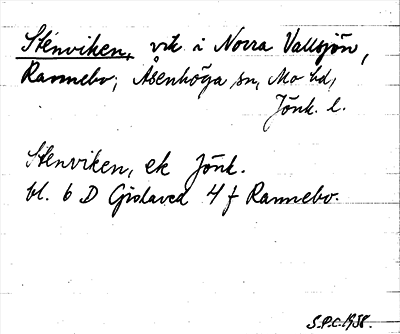 Stenviken, vik i Norra Vallsjön,
Rannebo, Åsenhöga sn, Mo hd,
Jönk. l.
Stenviken, ek Jönk.
bl. 6 D Gislaved 4 f Rannebo.
S.P.C. 1958.